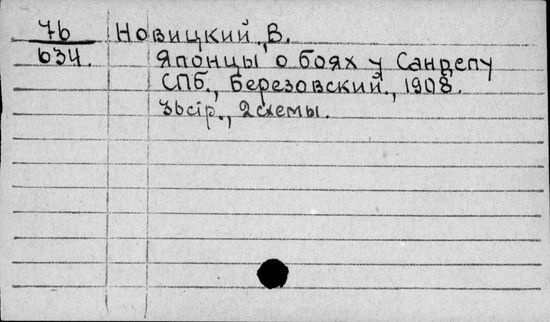 76 Новицкий, В.
634. Японцы о боях у Сандепу
СПб., Березовский, 1908.
36 стр., 2 схемы.